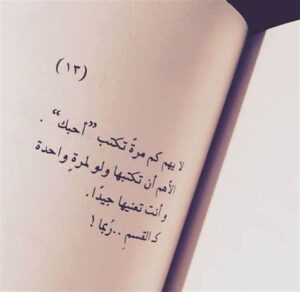 (١٣)
لا يهم كم مرةً تكتب ”أحبك“ .
الأهم أن تكتبها ولو لمرةٍ واحدة
وأنت تعنيها جيدًا.
كـ القسمِ ..رُبما !